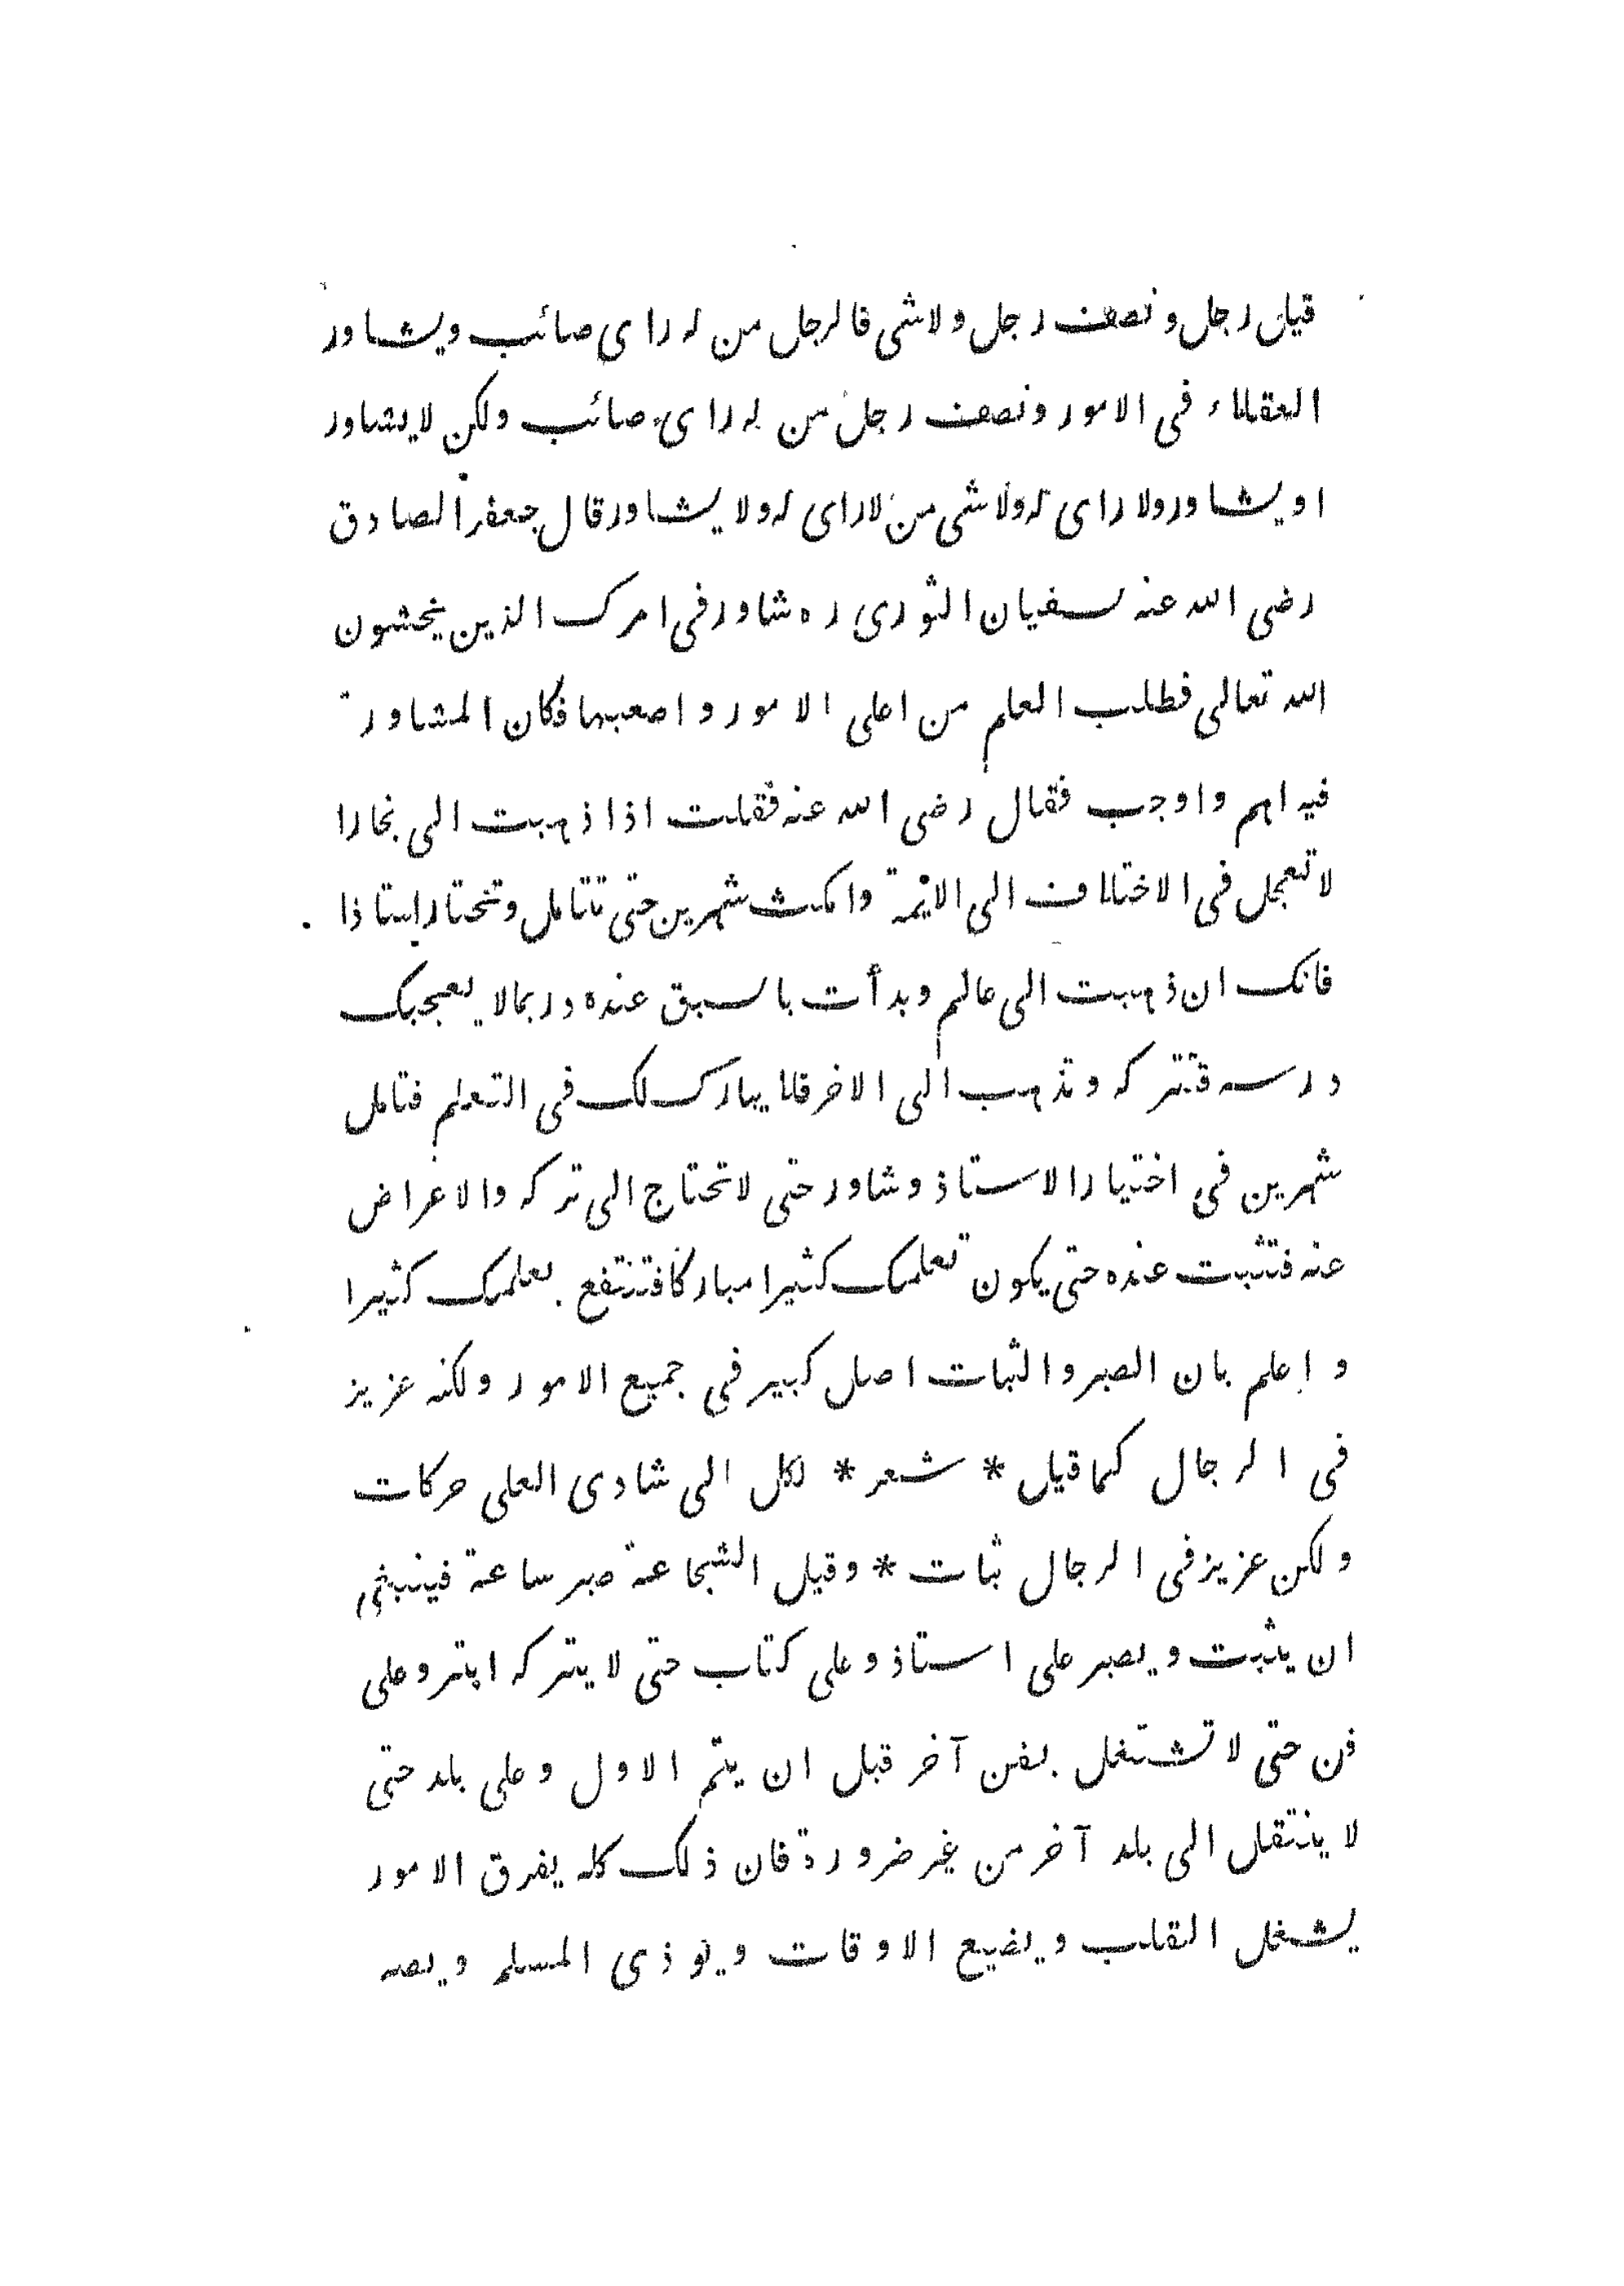 قيل رجل ونصف رجل ولاشى فالرجل من له راى صائب ويشاور
العقلاء فى الامور ونصف رجل من له راى صائب ولكن لايشاور
اويشاور ولا راى له ولاشى من لاراى له ولا يشاور قال جعفر الصادق
رضى الله عنه لسفيان الثورى ره شاور فى امرك الذين يخشون
الله تعالى فطلب العلم من اعلى الامور واصعبها فكان المشاورة
فيه اهم واوجب فقال رضى الله عنه فقلت اذا ذهبت الى بخارا
لا تعجل فى الاختلاف الى الائمة وامكث شهرين حتى تتامل وتختار استاذا
فانك ان ذهبت الى عالم وبدأت بالسبق عنده وربما لا يعجبك
درسه فتتركه وتذهب الى الاخر فلا يبارك لك فى التعلم فتامل
شهرين فى اختيار الاستاذ وشاور حتى لا تحتاج الى تركه والاعراض
عنه فتثبت عنده حتى يكون تعلمك كثيرا مباركا فتنتفع بعلمك كثيرا
واعلم بان الصبر والثبات اصل كبير فى جميع الامور ولكنه عزيز
فى الرجال كما قيل * شعر * لكل الى شادى العلى حركات
ولكن عزيز فى الرجال ثبات * وقيل الشجاعة صبر ساعة فينبغى
ان يثبت ويصبر على استاذ وعلى كتاب حتى لا يتركه ابتر وعلى
فن حتى لا تشتغل بفن آخر قبل ان يتم الاول وعلى بلد حتى
لا ينتقل الى بلد آخر من غير ضرورة فان ذلك كله يفرق الامور
يشغل القلب ويضيع الاوقات ويوذى المسلم ويصه